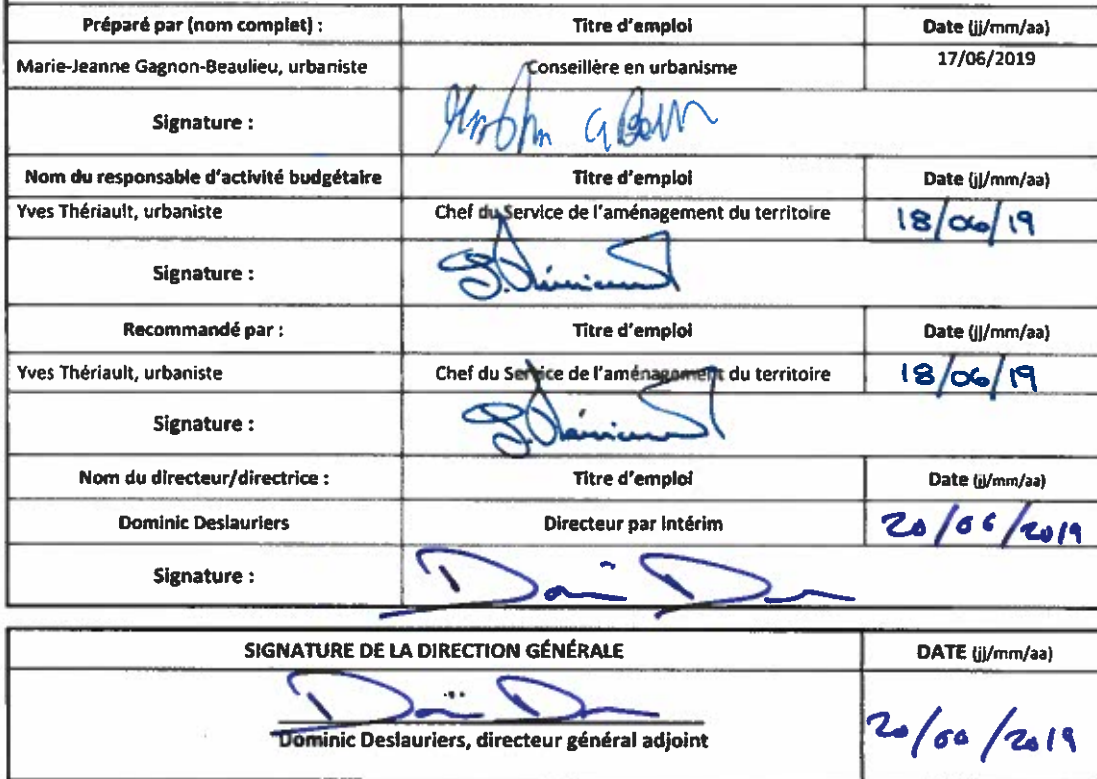 Préparé par (nom complet) : Titre d'emploi Date (jj/mm/aa)
Marie-Jeanne Gagnon-Beaulieu, urbaniste Conseillère en urbanisme 17/06/2019
Signature :
Nom du responsable d'activité budgétaire Titre d'emploi Date (jj/mm/aa)
Yves Thériault, urbaniste Chef du Service de l'aménagement du territoire 18/06/19
Signature :
Recommandé par : Titre d'emploi Date (jj/mm/aa)
Yves Thériault, urbaniste Chef du Service de l'aménagement du territoire 18/06/19
Signature :
Nom du directeur/directrice : Titre d'emploi Date (jj/mm/aa)
Dominic Deslauriers Directeur par intérim 20/06/2019
Signature :
SIGNATURE DE LA DIRECTION GÉNÉRALE DATE (jj/mm/aa)
Dominic Deslauriers, directeur général adjoint 20/06/2019